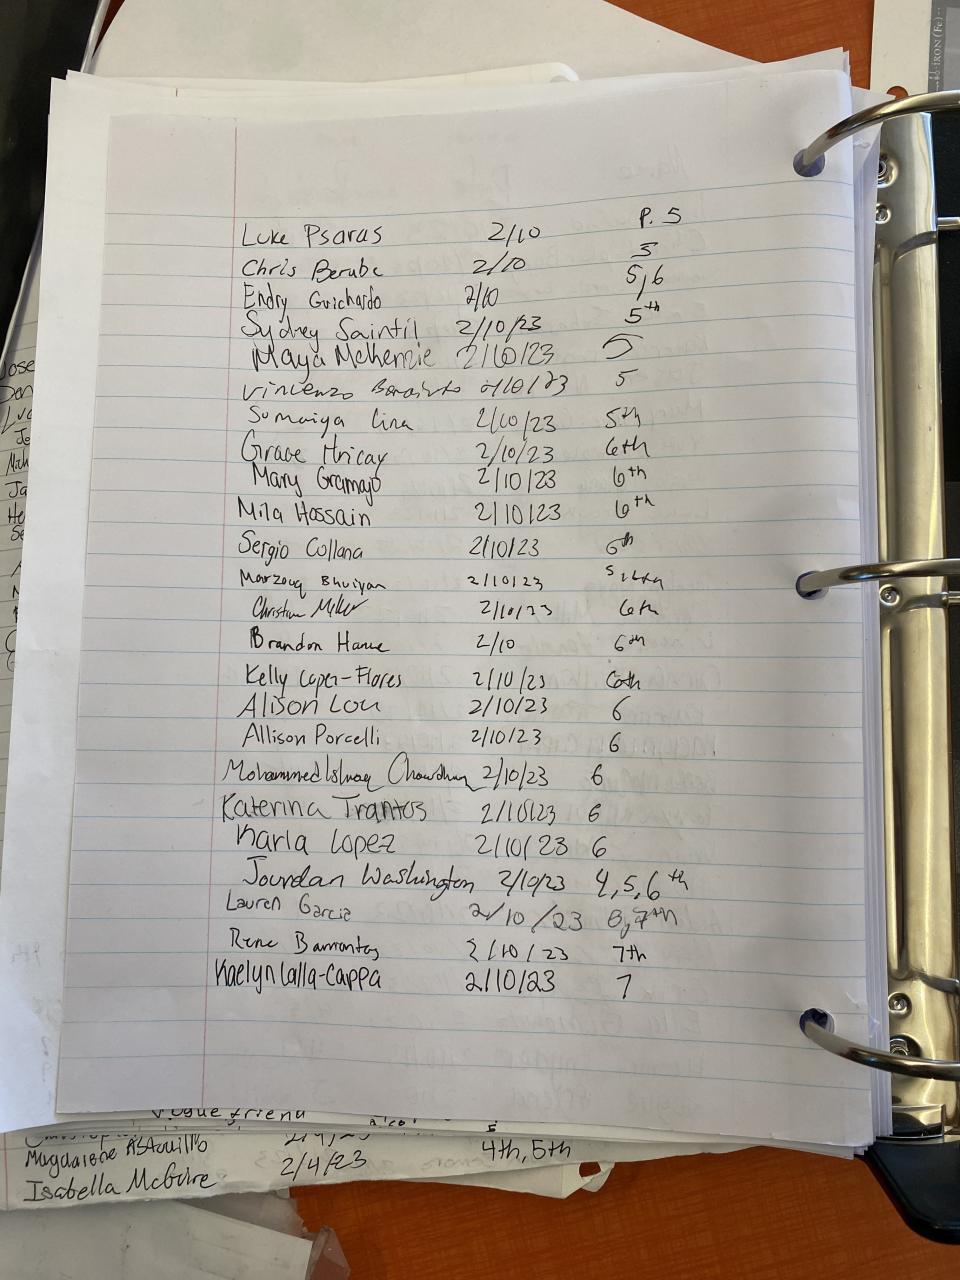 IRON (Fe)
Luke Psaras 2/10 P. 5
Chris Berube 2/10 5
Endry Guichardo 2/10 5,6
Sydney Saintil 2/10/23 5th
Maya McKenzie 2/10/23 5
Vincenzo 2/10/23 5
Sumaiya Lira 2/10/23 5th
Grace Hricay 2/10/23 6th
Mary Gramajo 2/10/23 6th
Mila Hossain 2/10/23 6th
Sergio Collana 2/10/23 6th
Marzouq Bhuiyan 2/10/23 5,6th
Christian Miller 2/10/23 6th
Brandon 2/10 6th
Kelly Lopez-Flores 2/10/23 6th
Alison Lou 2/10/23 6
Allison Porcelli 2/10/23 6
Mohammed Ishraq Chowdhury 2/10/23 6
Katerina Trantos 2/10/23 6
Karla Lopez 2/10/23 6
Jourdan Washington 2/10/23 4,5,6th
Lauren Garcia 2/10/23 7th
Rene Barrantes 2/10/23 7th
Kaelyn Lalla-Cappa 2/10/23 7
Vogue friend
Magdalene 4th, 5th
Isabella McGuire 2/4/23